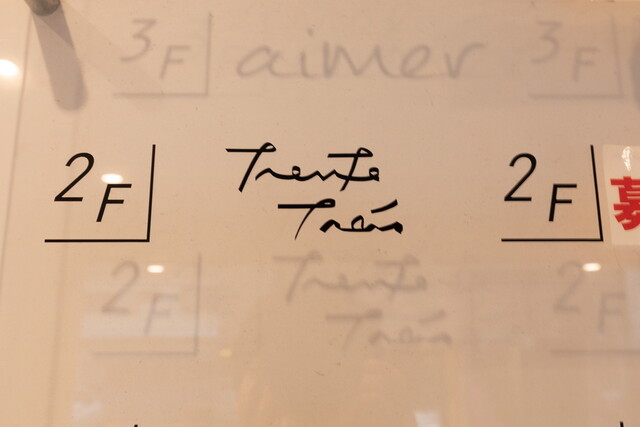 3F aimer 3F
2F Trente 2F 募
Trois
2F Trente 2F
Trois